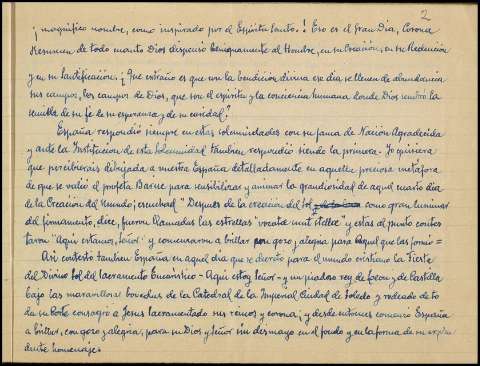 2
¡magnífico nombre, como inspirado por el Espíritu Santo.! Ese es el Gran Día, Corona
Resumen de todo cuanto Dios dispensó benignamente al Hombre, en su Creación, en su Redención
y en su Santificación, ¿Que extraño es que con la bendición divina ese día se llenen de abundancia
sus campos, los campos de Dios, que son el espíritu y la conciencia humana donde Dios sembró la
semilla de su fe de su esperanza y de su caridad?
España respondió siempre en estas solemnidades con su fama de Nación Agradecida
y ante la Institución de esta Solemnidad tambien respondió siendo la primera. Yo quisiera
que percibierais dibujada a nuestra España detalladamente en aquella preciosa metáfora
de que se valió el profeta Baruc para sensibilizar y animar la grandiosidad de aquel cuarto día
de la Creación del Mundo; escuchad "Despues de la creación del sol como gran luminar
del firmamento, dice, fueron llamadas las estrellas "vocatæ sunt stellæ" y estas al punto contes
taron "Aquí estamos, Señor" y comenzaron a brillar con gozo y alegria para Aquel que las formó =
Así contestó tambien España en aquel día que se decretó para el mundo cristiano la Fiesta
del Divino Sol del Sacramento Eucarístico - Aquí estoy Señor - y un piadoso rey de Leon y de Castilla
bajo las maravillosas bovedas de la Catedral de la Imperial Ciudad de Toledo y rodeado de to
da su Corte consagró a Jesus Sacramentado sus reinos y corona; y desde entonces comenzó España
a brillar, con gozo y alegria, para su Dios y Señor sin desmayo en el fondo y en la forma de su esplen
dente homenaje.